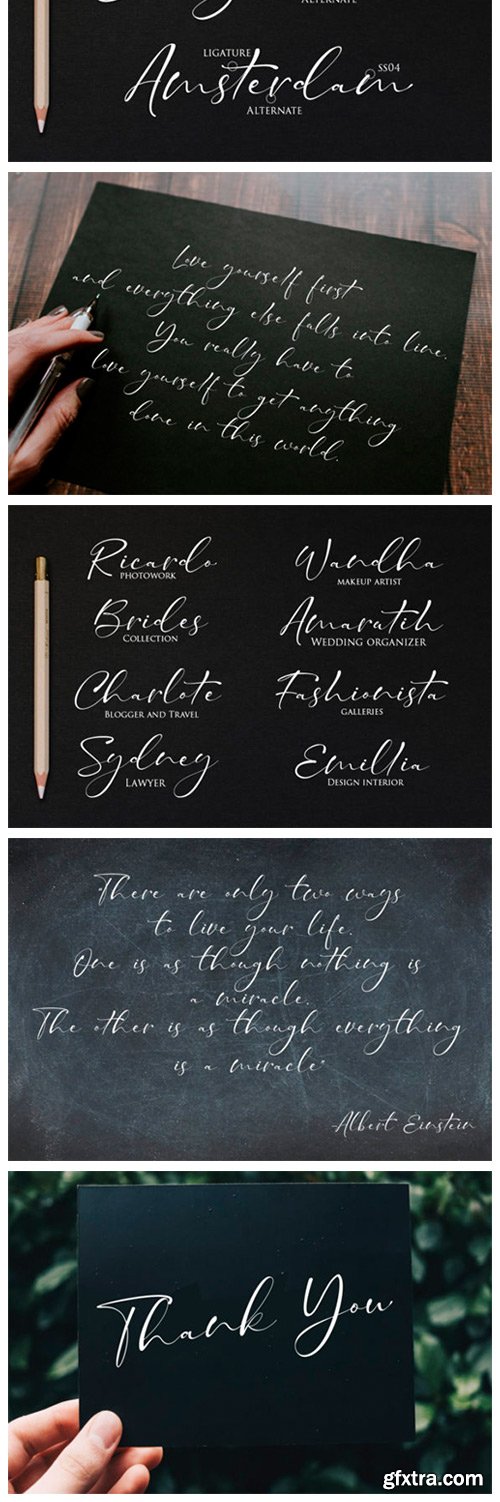 ALTERNATE
LIGATURE
SS04
Amsterdam
ALTERNATE
Love yourself first
and everything else falls into line.
You really have to
love yourself to get anything
done in this world.
Ricardo
PHOTOWORK
Wandha
MAKEUP ARTIST
Brides
COLLECTION
Amaratih
WEDDING ORGANIZER
Charlote
BLOGGER AND TRAVEL
Fashionista
GALLERIES
Sydney
LAWYER
Emillia
DESIGN INTERIOR
"There are only two ways
to live your life.
One is as though nothing is
a miracle.
The other is as though everything
is a miracle"
-Albert Einstein
Thank You
gfxtra.com